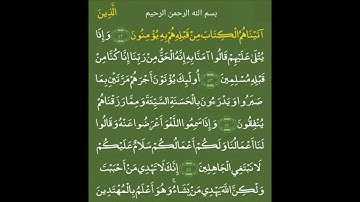 بسم الله الرحمن الرحيم
الَّذِينَ
آتَيْنَاهُمُ الْكِتَابَ مِنْ قَبْلِهِ هُمْ بِهِ يُؤْمِنُونَ وَإِذَا
يُتْلَى عَلَيْهِمْ قَالُوا آمَنَّا بِهِ إِنَّهُ الْحَقُّ مِنْ رَبِّنَا إِنَّا كُنَّا مِنْ
قَبْلِهِ مُسْلِمِينَ أُولَئِكَ يُؤْتَوْنَ أَجْرَهُمْ مَرَّتَيْنِ بِمَا
صَبَرُوا وَيَدْرَءُونَ بِالْحَسَنَةِ السَّيِّئَةَ وَمِمَّا رَزَقْنَاهُمْ
يُنْفِقُونَ وَإِذَا سَمِعُوا اللَّغْوَ أَعْرَضُوا عَنْهُ وَقَالُوا
لَنَا أَعْمَالُنَا وَلَكُمْ أَعْمَالُكُمْ سَلَامٌ عَلَيْكُمْ
لَا نَبْتَغِي الْجَاهِلِينَ إِنَّكَ لَا تَهْدِي مَنْ أَحْبَبْتَ
وَلَكِنَّ اللَّهَ يَهْدِي مَنْ يَشَاءُ وَهُوَ أَعْلَمُ بِالْمُهْتَدِينَ